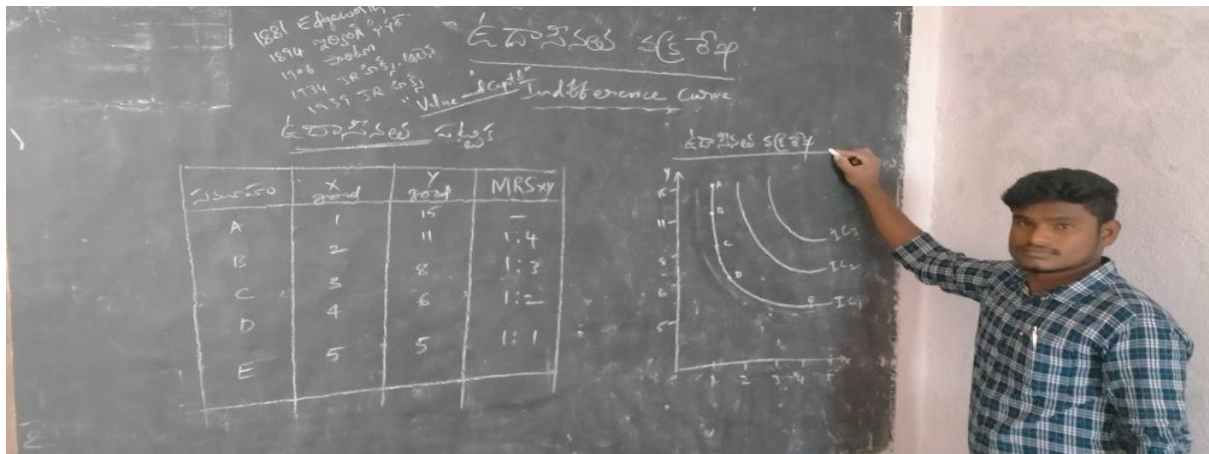 1881 Edgeworth
1894
1906
1934 JR హిక్స్
1939 JR హిక్స్
ఉదాసీనత వక్రరేఖ
"Value &
Indifference Curve
ఉదాసీనత పట్టిక
X Y MRSxy
A 1 15 –
B 2 11 1:4
C 3 8 1:3
D 4 6 1:2
E 5 5 1:1
ఉదాసీనత వక్రరేఖ
Y
15 A
11 B
8 C
6 D
5 E
IC3
IC2
IC1
1 2 3 4